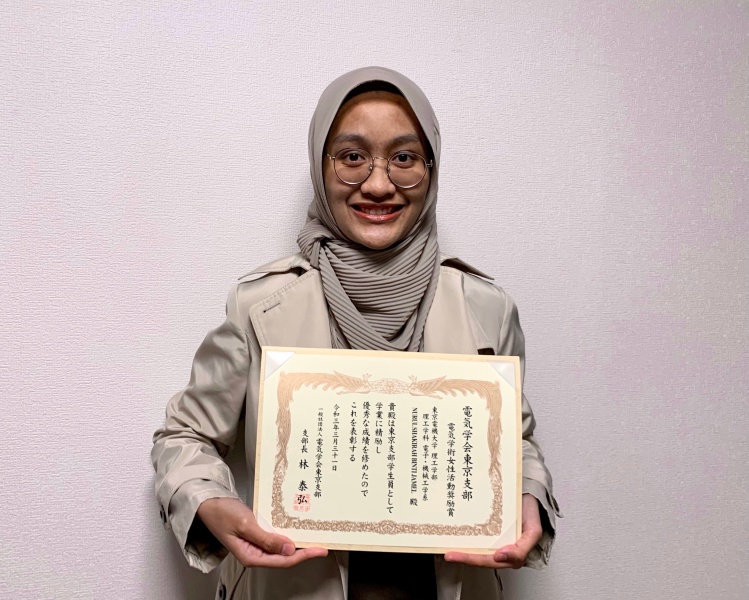 電気学会東京支部
電気学術女性活動奨励賞
東京電機大学 理工学部
理工学科 電子・機械工学系
NURUL SHAKIRAH BINTI JAMEL 殿
貴殿は東京支部学生員として
学業に精励し
優秀な成績を修めたので
これを表彰する
令和三年三月三十一日
一般社団法人 電気学会東京支部
支部長 林 泰弘